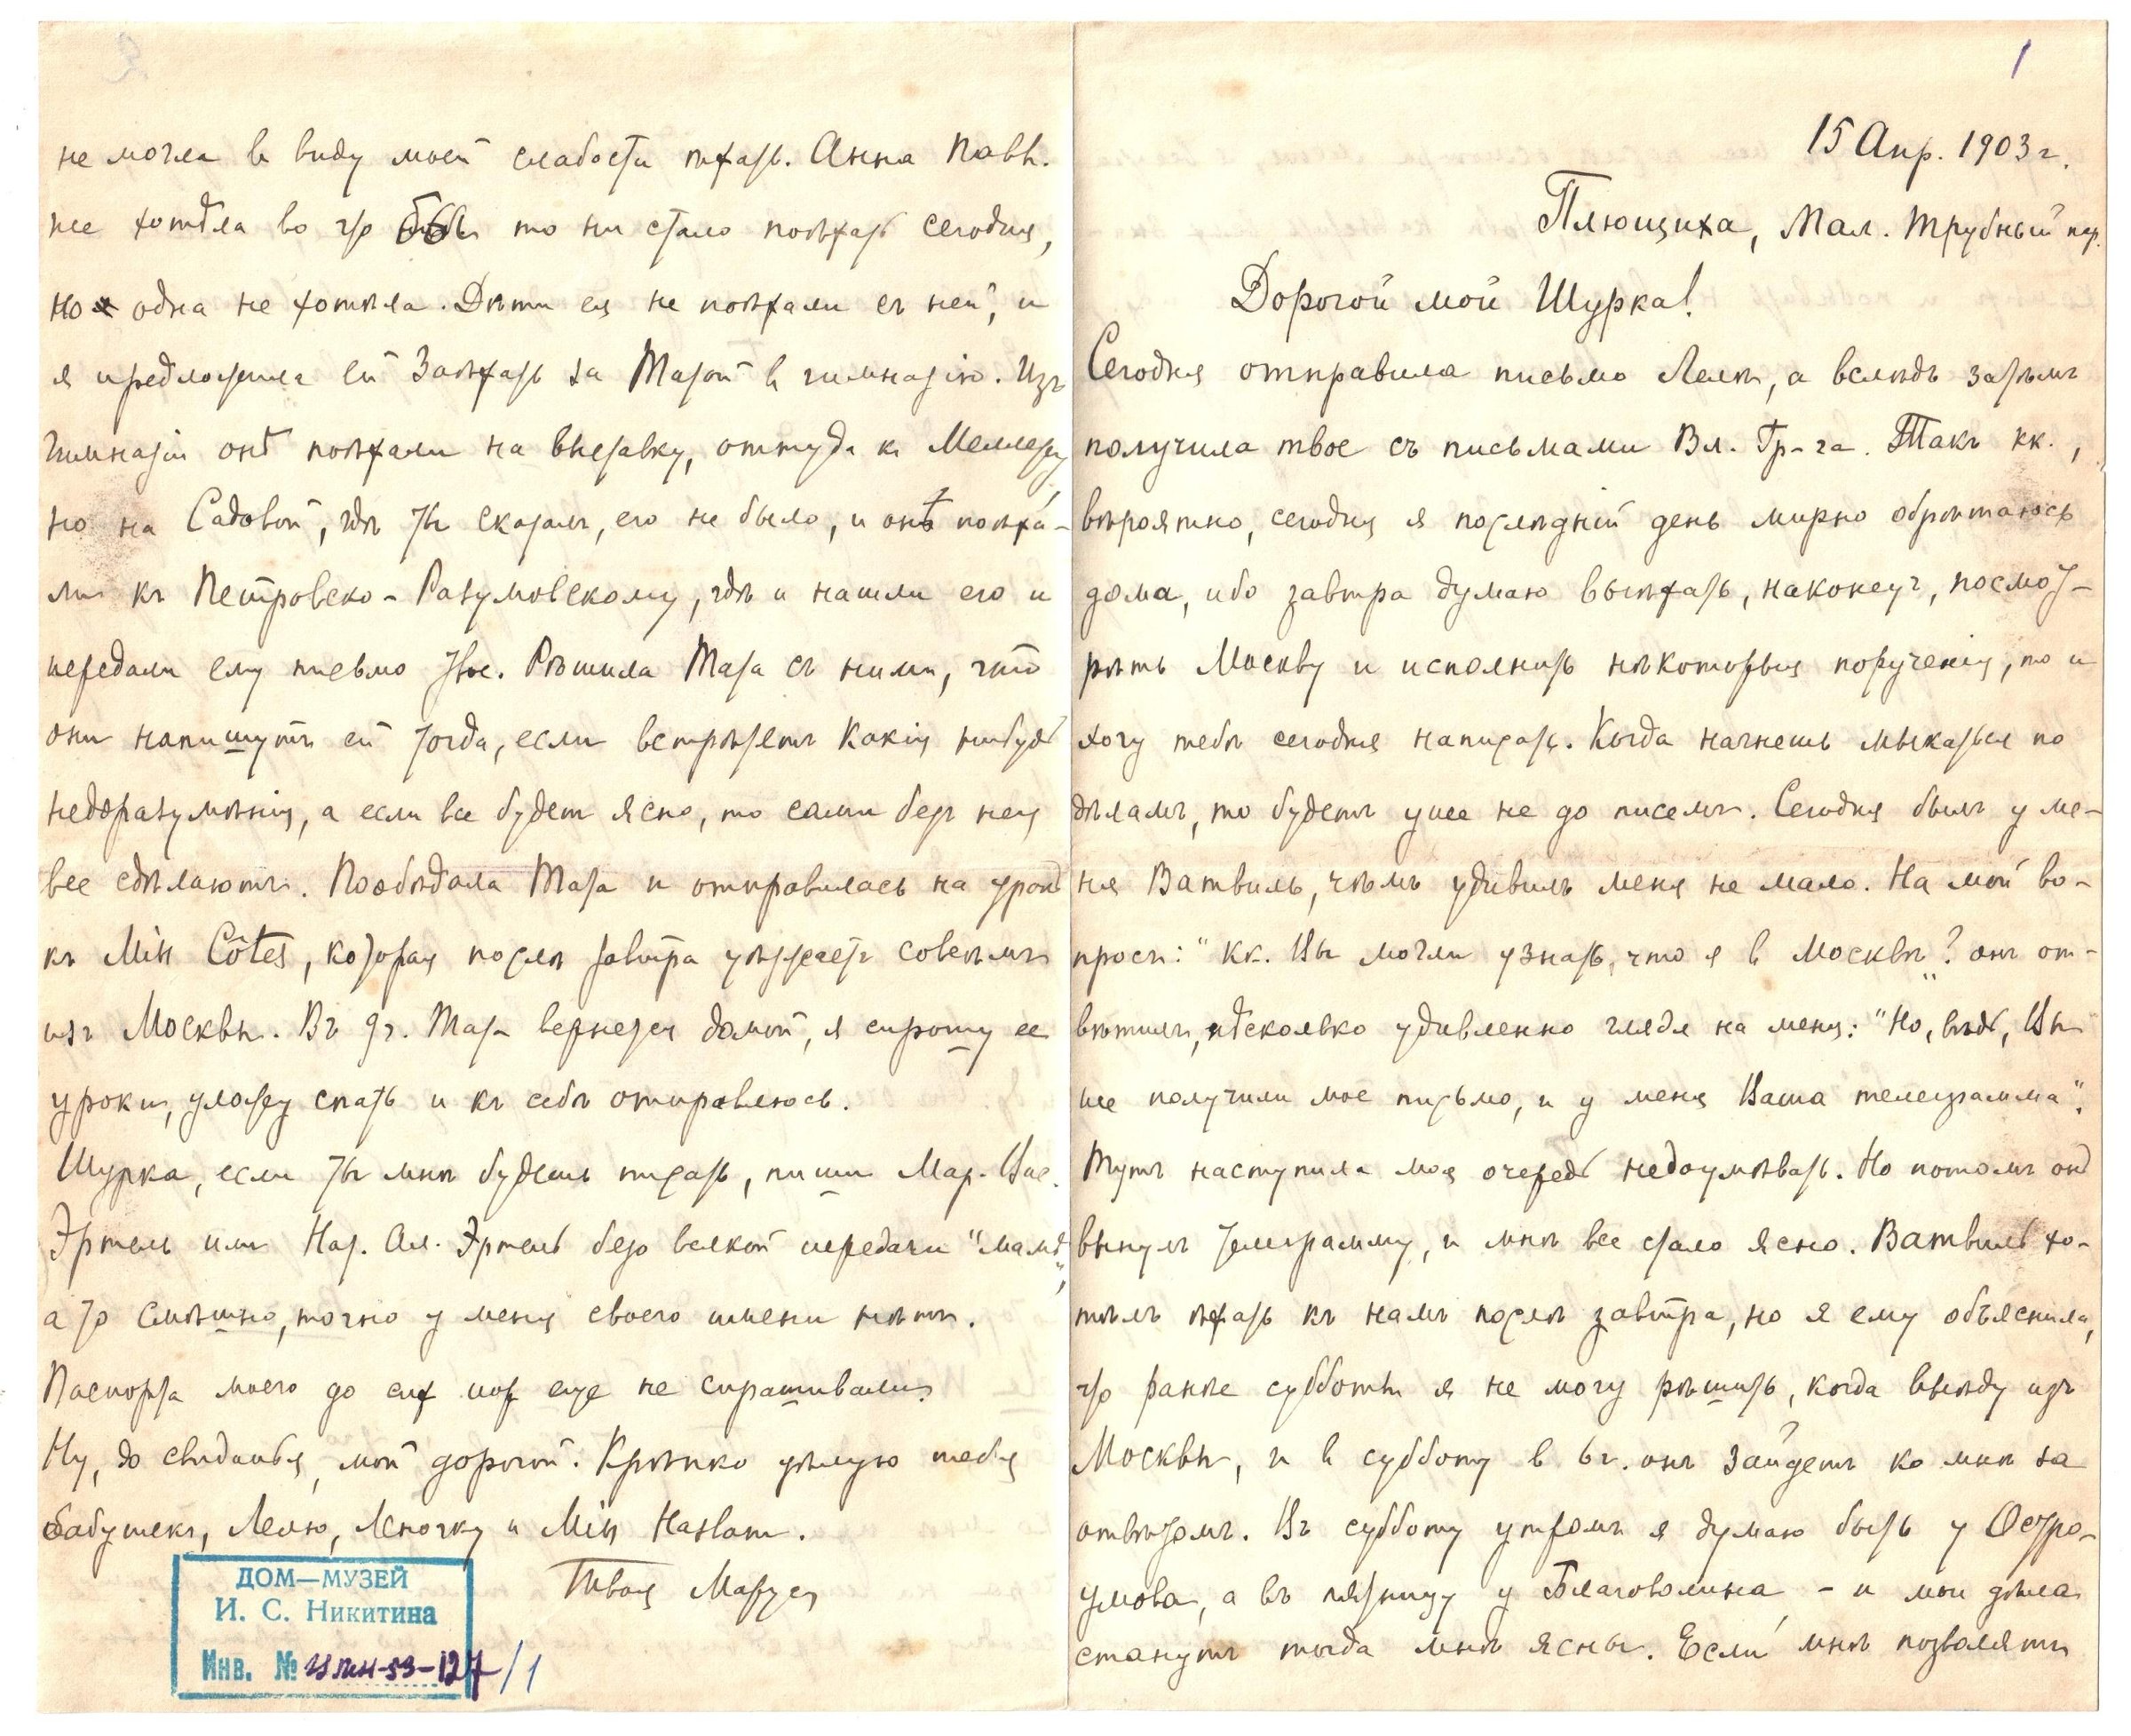 1
15 Апр. 1903 г.
Плющиха, Мал. Трубный пер.
Дорогой мой Шурка!
Сегодня отправила письмо Лелѣ, а вслѣдъ затѣмъ
получила твое съ письмами Вл. Гр-га. Такъ кк.,
вѣроятно, сегодня я послѣдній день мирно обрѣтаюсь
дома, ибо завтра думаю выѣхать, наконецъ, посмот-
рѣть Москву и исполнить нѣкоторыя порученія, то и
хочу тебѣ сегодня написать. Когда начнешь мыкаться по
дѣламъ, то будетъ уже не до писемъ. Сегодня былъ у ме-
ня Ватвиль, чѣмъ удивилъ меня не мало. На мой во-
просъ: "Кк. Вы могли узнать, что я в Москвѣ"? онъ от-
вѣтилъ, нѣсколько удивленно глядя на меня: "Но, вѣдь, Вы
же получили мое письмо, и у меня Ваша телеграмма".
Тутъ наступила моя очередь недоумѣвать. Но потомъ онъ
вынулъ телеграмму, и мнѣ все стало ясно. Ватвиль хо-
тѣлъ ѣхать къ намъ послѣ завтра, но я ему объяснила,
что ранѣе субботы я не могу рѣшить, когда выѣду изъ
Москвы, и в субботу в 6 ч. онъ зайдетъ ко мнѣ за
отвѣтомъ. Въ субботу утромъ я думаю быть у Остро-
умова, а въ пятницу у Благоволина - и мои дѣла
станутъ тогда мнѣ ясны. Если мнѣ позволятъ
не могла в виду моей слабости ѣхать. Анна Павл.
же хотѣла во что бы то ни стало поѣхать сегодня,
но одна не хотѣла. Дѣти ея не поѣхали съ ней, и
я предложила ей заѣхать за Татой в гимназію. Изъ
гимназіи онѣ поѣхали на выставку, оттуда к Меллеру,
но на Садовой, гдѣ ты сказалъ, его не было, и онѣ поѣха-
ли къ Петровско-Разумовскому, гдѣ и нашли его и
передали ему письмо твое. Рѣшила Тата съ ними, что
они напишутъ ей тогда, если встрѣтятъ какія нибудь
недоразумѣнія, а если все будет ясно, то сами безъ нея
все сдѣлаютъ. Пообѣдала Тата и отправилась на урокъ
къ Miss Côtes, которая послѣ завтра уѣзжаетъ совсѣмъ
изъ Москвы. Въ 9 ч. Тата вернется домой, я спрошу ее
уроки, уложу спать и къ себѣ отправлюсь.
Шурка, если ты мнѣ будешь писать, пиши Мар. Вас.
Эртель или Нат. Ал. Эртель безо всякой передачи "мамѣ",
а то смѣшно, точно у меня своего имени нѣтъ.
Паспорта моего до сих пор еще не спрашивали.
Ну, до свиданья, мой дорогой. Крѣпко цѣлую тебя
бабушекъ, Лелю, Леночку и Miss Haslam.
Твоя Маруся
ДОМ—МУЗЕЙ
И. С. Никитина
Инв. №